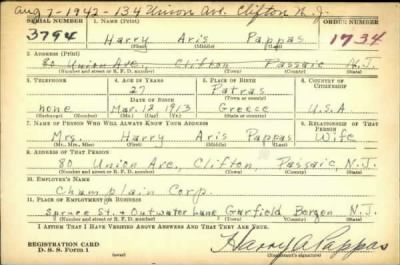 Aug 7-1942-134 Union Ave. Clifton N.J.
SERIAL NUMBER 1. NAME (Print) ORDER NUMBER
3794 Harry Aris Pappas 1734
(First) (Middle) (Last)
2. ADDRESS (Print)
80 Union Ave., Clifton Passaic N.J.
(Number and street or R. F. D. number) (Town) (County) (State)
3. TELEPHONE 4. AGE IN YEARS 5. PLACE OF BIRTH 6. COUNTRY OF CITIZENSHIP
27 Patras
DATE OF BIRTH (Town or county)
none Mar. 12 1913 Greece U.S.A.
(Exchange) (No.) (Mo.) (Day) (Yr.) (State or country)
7. NAME OF PERSON WHO WILL ALWAYS KNOW YOUR ADDRESS 8. RELATIONSHIP OF THAT PERSON
Mrs. Harry Aris Pappas Wife
(Mr., Mrs., Miss) (First) (Middle) (Last)
9. ADDRESS OF THAT PERSON
80 Union Ave., Clifton, Passaic N.J.
(Number and street or R. F. D. number) (Town) (County) (State)
10. EMPLOYER'S NAME
Champlain Corp.
11. PLACE OF EMPLOYMENT OR BUSINESS
Spruce St. & Outwater Lane Garfield Bergen N.J.
(Number and street or R. F. D. number) (Town) (County) (State)
I AFFIRM THAT I HAVE VERIFIED ABOVE ANSWERS AND THAT THEY ARE TRUE.
REGISTRATION CARD
D. S. S. Form 1
Harry A Pappas
(Registrant's signature)